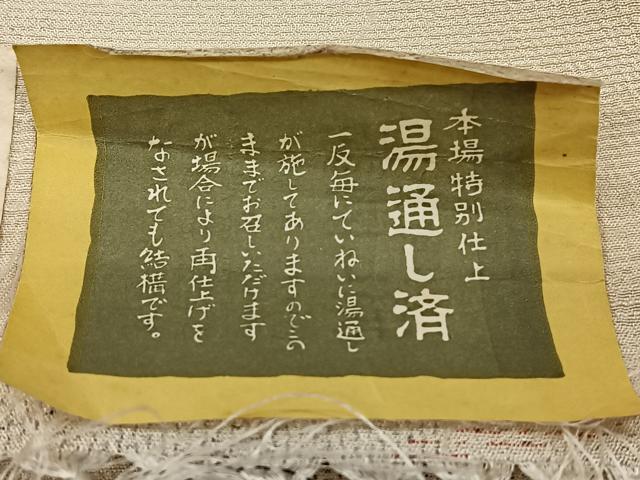 本場特別仕上
湯通し済
一反毎にていねいに湯通し
が施してありますのでこの
ままでお召しいただけます
が場合により再仕上げを
なされても結構です。